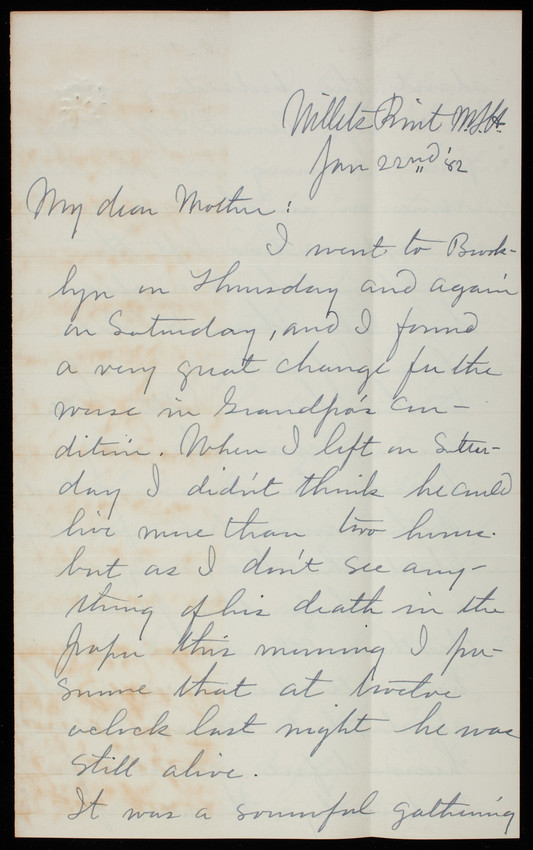 Willets Point N.Y.H.
Jan 22nd '82
My dear Mother:
I went to Brook-
lyn on Thursday and again
on Saturday, and I found
a very great change for the
worse in Grandpa's con-
dition. When I left on Satur-
day I didn't think he could
live more than two hours.
but as I don't see any-
thing of his death in the
paper this morning I pre-
sume that at twelve
oclock last night he was
still alive.
It was a sorrowful gathering